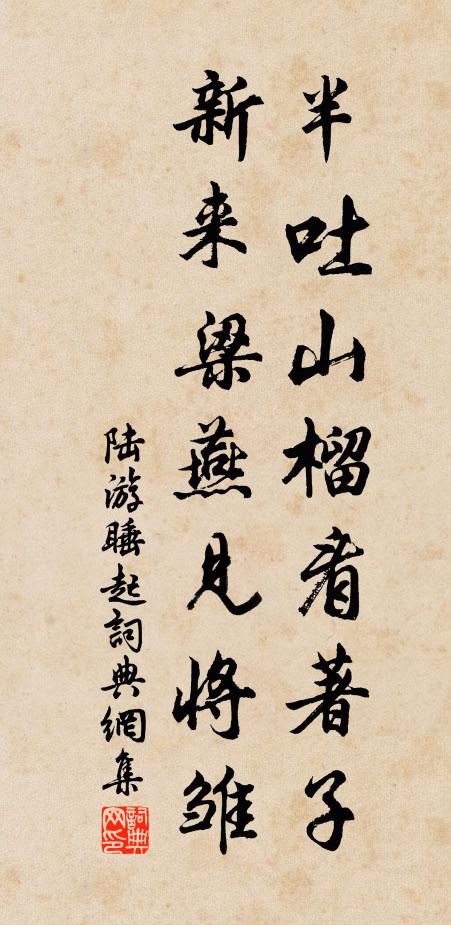 半吐山榴看著子
新来梁燕見将雏
陆游睡起詞典網集
詞典网印